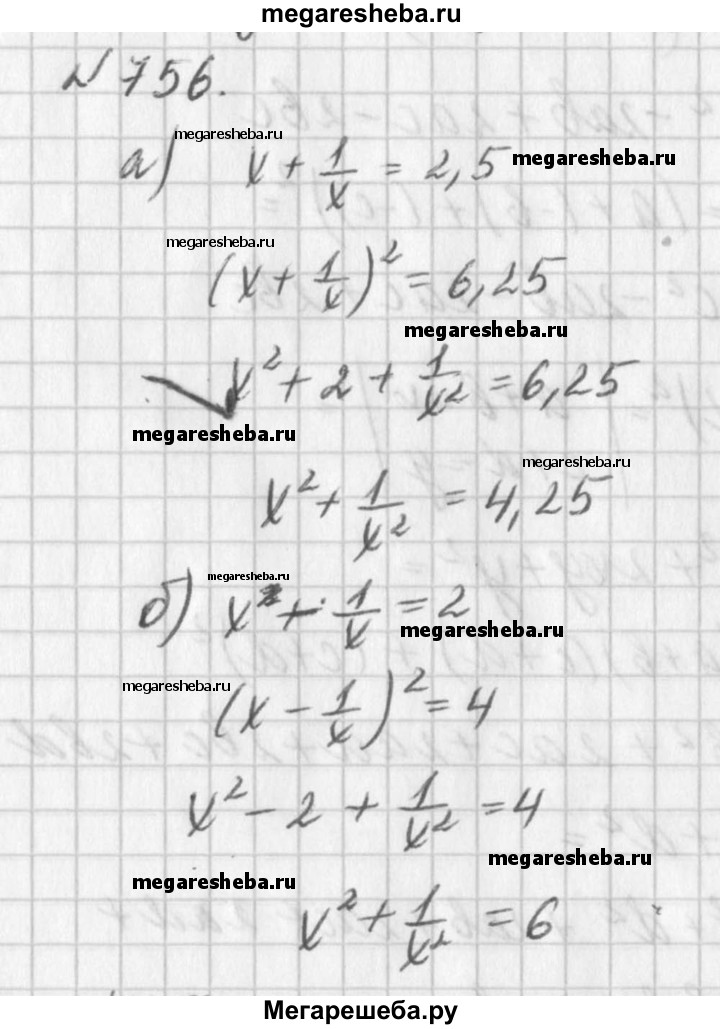 megaresheba.ru
№756.
megaresheba.ru
а) x + 1/x = 2,5 megaresheba.ru
megaresheba.ru
(x + 1/x)² = 6,25
megaresheba.ru
x² + 2 + 1/x² = 6,25
megaresheba.ru
megaresheba.ru
x² + 1/x² = 4,25
megaresheba.ru
б) x - 1/x = 2
megaresheba.ru
megaresheba.ru
(x - 1/x)² = 4
x² - 2 + 1/x² = 4
megaresheba.ru
megaresheba.ru
x² + 1/x² = 6
Мегарешеба.ру